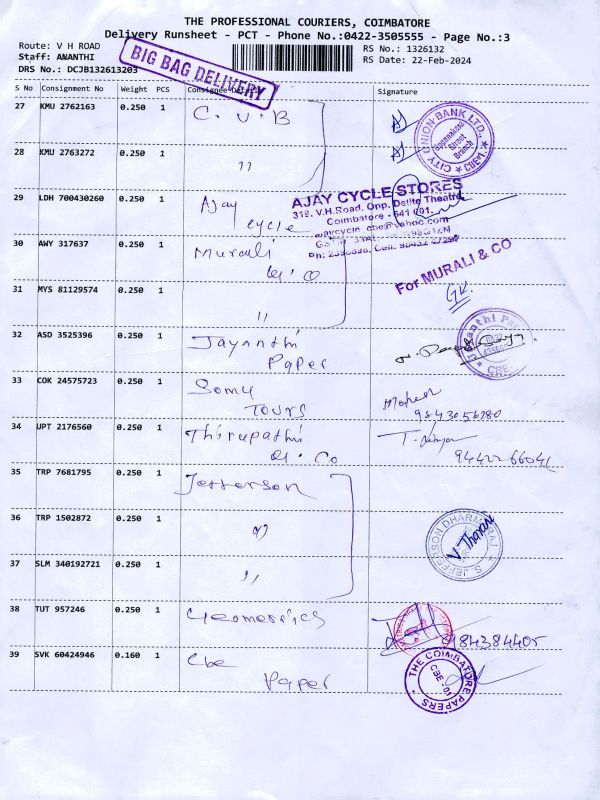 THE PROFESSIONAL COURIERS, COIMBATORE
Delivery Runsheet - PCT - Phone No.:0422-3505555 - Page No.:3
Route: V H ROAD
RS No.: 1326132
Staff: ANANTHI
RS Date: 22-Feb-2024
DRS No.: DCJB132613203
BIG BAG DELIVERY
S No Consignment No Weight PCS Consignee Details Signature
27 KMU 2762163 0.250 1 C. V. B
CITY UNION BANK LTD.,
Oppanakara Street Branch
CBE-1.
28 KMU 2763272 0.250 1 ''
29 LDH 700430260 0.250 1 Ajay cycle
AJAY CYCLE STORES
318, V.H.Road, Opp. Delite Theatre,
Coimbatore - 641 001.
30 AWY 317637 0.250 1 Murali & Co
For MURALI & CO
31 MYS 81129574 0.250 1 ''
32 ASD 3525396 0.250 1 Jayanthi Paper
CBE
33 COK 24575723 0.250 1 Somu Tours
9843056780
34 UPT 2176560 0.250 1 Thirupathi & Co
94422 66041
35 TRP 7681795 0.250 1 Jefferson
36 TRP 1502872 0.250 1 ''
S. JEFFERSON DHARMARAJ
37 SLM 340192721 0.250 1 ''
38 TUT 957246 0.250 1 Geometrics
984384405
39 SVK 60424946 0.160 1 Cbe Paper
THE COIMBATORE PAPERS
CBE - 01